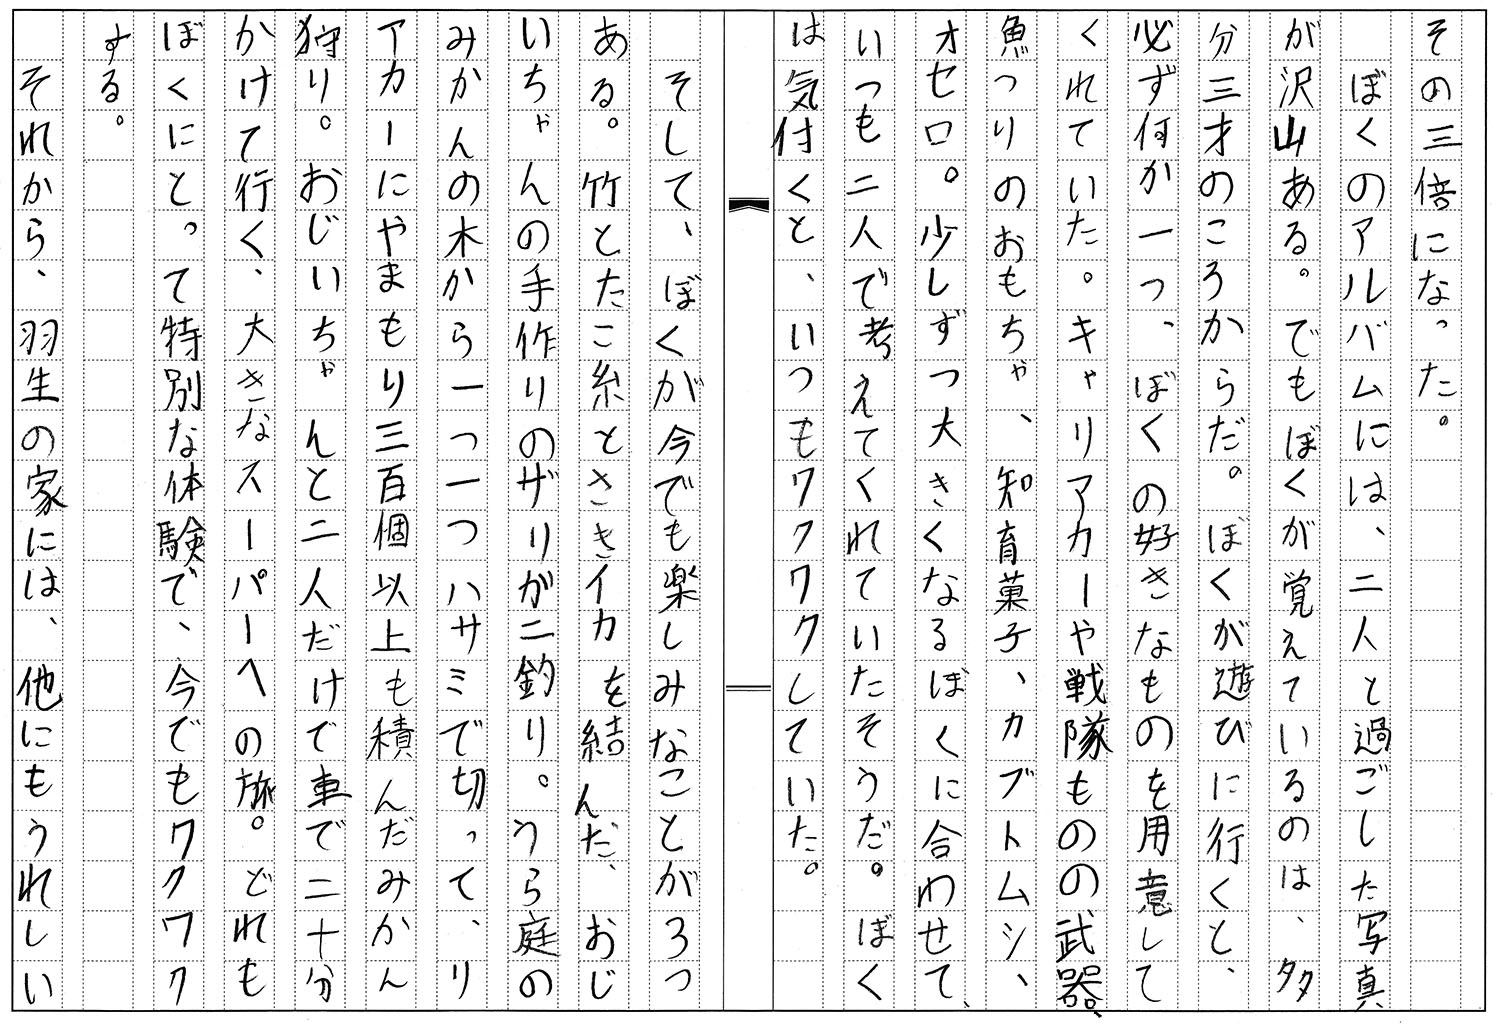 その三倍になった。
ぼくのアルバムには、二人と過ごした写真
が沢山ある。でもぼくが覚えているのは、多
分三才のころからだ。ぼくが遊びに行くと、
必ず何か一つ、ぼくの好きなものを用意して
くれていた。キャリアカーや戦隊ものの武器、
魚つりのおもちゃ、知育菓子、カブトムシ、
オセロ。少しずつ大きくなるぼくに合わせて、
いつも二人で考えてくれていたそうだ。ぼく
は気付くと、いつもワクワクしていた。
そして、ぼくが今でも楽しみなことがろっ
ある。竹とたこ糸とさきイカを結んだ、おじ
いちゃんの手作りのザリガニ釣り。うら庭の
みかんの木から一つ一つハサミで切って、リ
アカーにやまもり三百個以上も積んだみかん
狩り。おじいちゃんと二人だけで車で二十分
かけて行く、大きなスーパーへの旅。どれも
ぼくにとって特別な体験で、今でもワクワク
する。
それから、羽生の家には、他にもうれしい